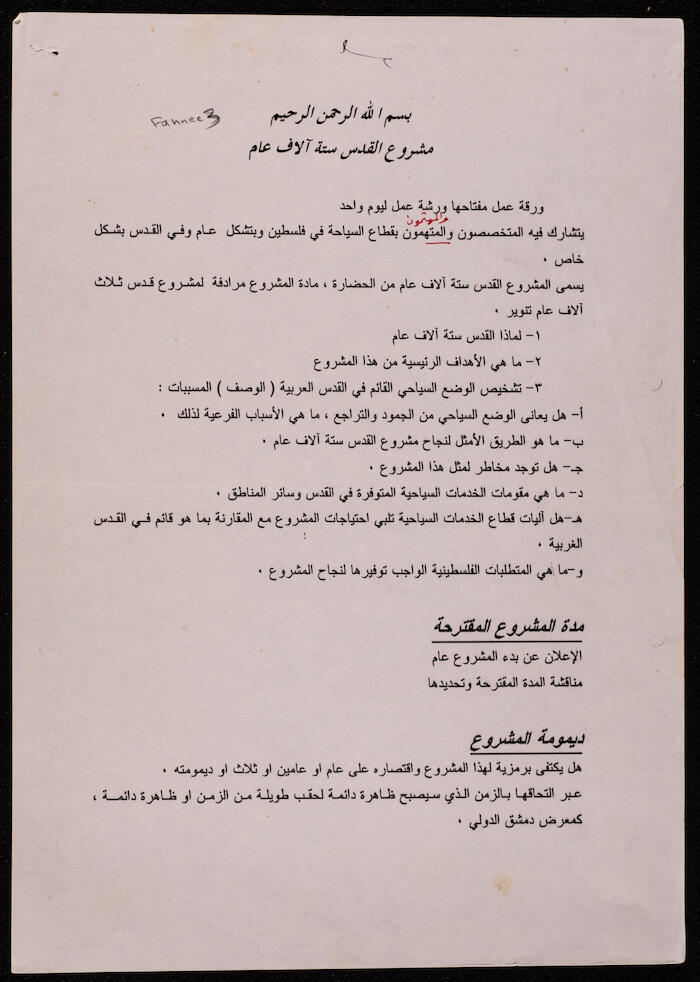 Fannee3
بسم الله الرحمن الرحيم
مشروع القدس ستة آلاف عام
ورقة عمل مفتاحها ورشة عمل ليوم واحد
والمهتمون
يتشارك فيه المتخصصون والمتهمون بقطاع السياحة في فلسطين وبتشكل عام وفي القدس بشكل
خاص ٠
يسمى المشروع القدس ستة آلاف عام من الحضارة ، مادة المشروع مرادفة لمشروع قدس ثلاث
آلاف عام تنوير ٠
١- لماذا القدس ستة آلاف عام
٢- ما هي الأهداف الرئيسية من هذا المشروع
٣- تشخيص الوضع السياحي القائم في القدس العربية ( الوصف ) المسببات :
أ- هل يعانى الوضع السياحي من الجمود والتراجع ، ما هي الأسباب الفرعية لذلك ٠
ب- ما هو الطريق الأمثل لنجاح مشروع القدس ستة آلاف عام ٠
جـ- هل توجد مخاطر لمثل هذا المشروع ٠
د- ما هي مقومات الخدمات السياحية المتوفرة في القدس وسائر المناطق ٠
هـ-هل آليات قطاع الخدمات السياحية تلبي احتياجات المشروع مع المقارنة بما هو قائم في القدس
الغربية ٠
و-ما هي المتطلبات الفلسطينية الواجب توفيرها لنجاح المشروع ٠
مدة المشروع المقترحة
الإعلان عن بدء المشروع عام
مناقشة المدة المقترحة وتحديدها
ديمومة المشروع
هل يكتفى برمزية لهذا المشروع واقتصاره على عام او عامين او ثلاث او ديمومته ٠
عبر التحاقها بالزمن الذي سيصبح ظاهرة دائمة لحقب طويلة من الزمن او ظاهرة دائمة ،
كمعرض دمشق الدولي ٠